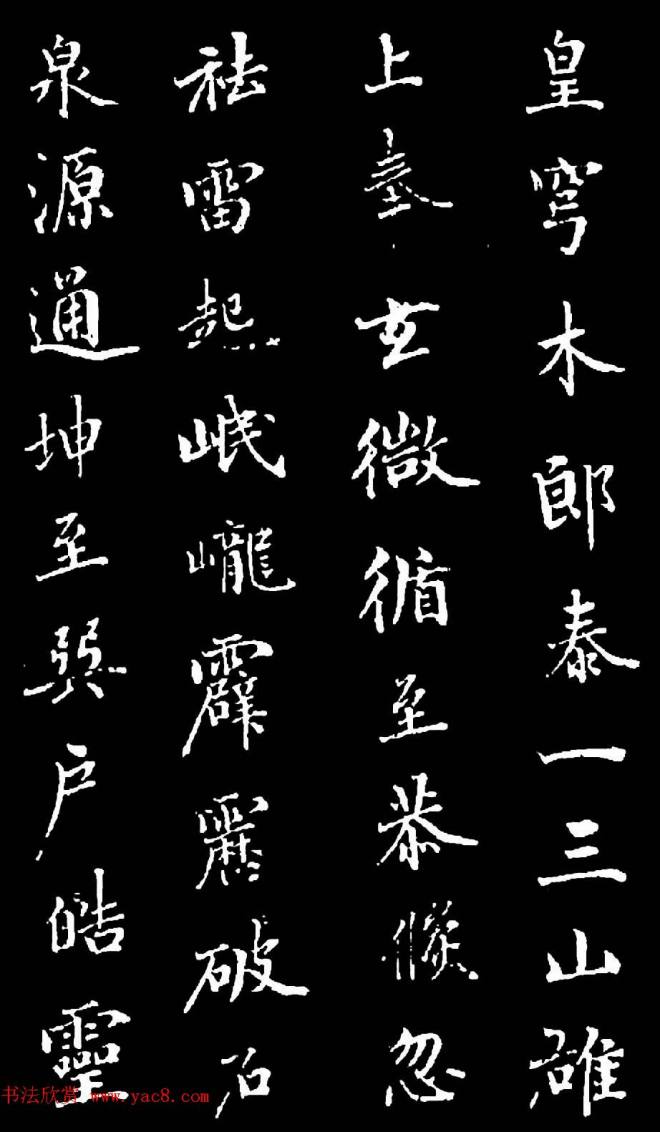 皇穹木郎泰一三山雄
上臺玄微循至恭倏忽
祛雷起岷巄霹靂破石
泉源通坤至巽户皓靈
书法欣赏 www.yac8.com